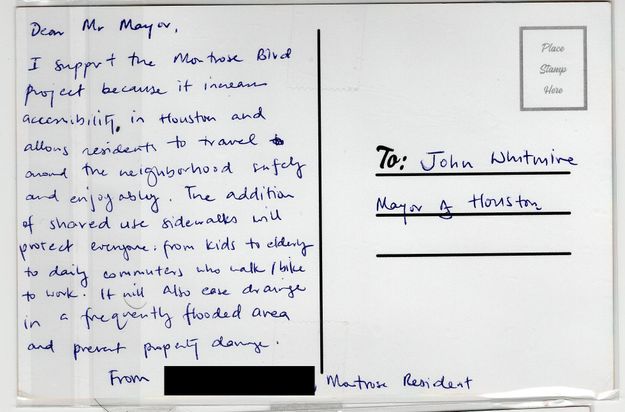 Dear Mr Mayor,
I support the Montrose Blvd
project because it increases
accessibility in Houston and
allows residents to travel
around the neighborhood safely
and enjoyably. The addition
of shared use sidewalks will
protect everyone: from kids to elderly
to daily commuters who walk/bike
to work. It will also ease drainge
in a frequently flooded area
and prevent property damage.
From , Montrose Resident
Place
Stamp
Here
To: John Whitmire
Mayor of Houston